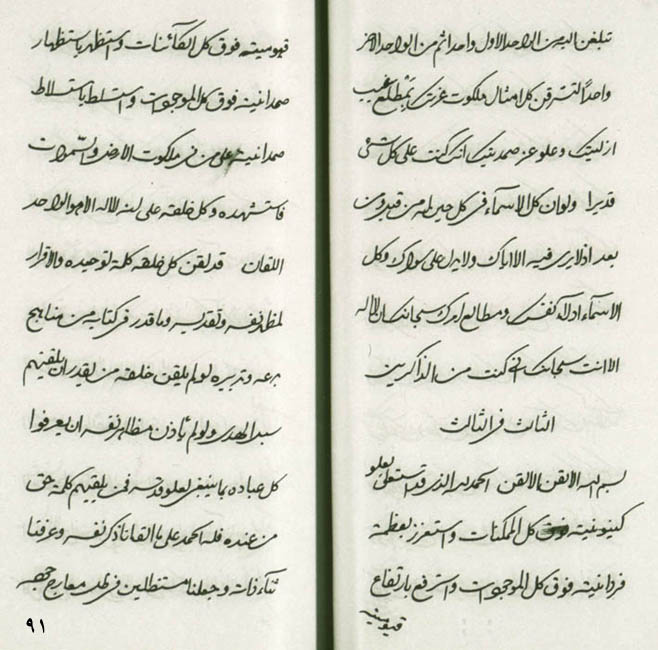 تبلغن اليه من الواحد الاول واحدا ثم من الواحد الاخر
واحدا لتشرقن كل امثال ملكوت عزتك بمطلع غيب
ازليتك وعلو عز صمديتك انك كنت على كل شئ
قديرا ولو ان كل الاسماء في كل حين له من قبل ومن
بعد اذ لا يرى فيه الا اياك ولا يدل على سواك وكل
الاسماء ادلاء لنفسك ومطالع امرك سبحانك ان لا اله
الا انت سبحانك اني كنت من الذاكرين
الثالث في الثالث
بسم الله الاتقن الاتقن الحمد لله الذي قد استعلى بعلو
كينونيته فوق كل الممكنات واستعزز بعظمة
فردانيته فوق كل الموجودات واسترفع بارتفاع
قيوميته
قيوميته فوق كل الكآئنات واستظهر باستظهار
صمدانيته فوق كل الموجودات واستسلط باستسلاط
صمدانيته على من في ملكوت الارض والسموات
فاستشهده وكل خلقه على انه لا اله الا هو الواحد
اللقان قد لقن كل خلقه كلمة توحيده والاقرار
لمظاهر نفسه وتقديسه وما قدر في كتابه من مناهج
بدعه وتدبيره لو لم يلقن خلقه من يقدر ان يلقنهم
سبل الهدى ولو لم ياذن مظاهر نفسه ان يعرفوا
كل عباده بما ينبغي لعلو قدسه فمن يلقنهم كلمة حق
من عنده فله الحمد على ما القانا ذكر نفسه وعرفنا
ثناء ذاته وجعلنا مستظلين في ظل معارج حججه
٩١